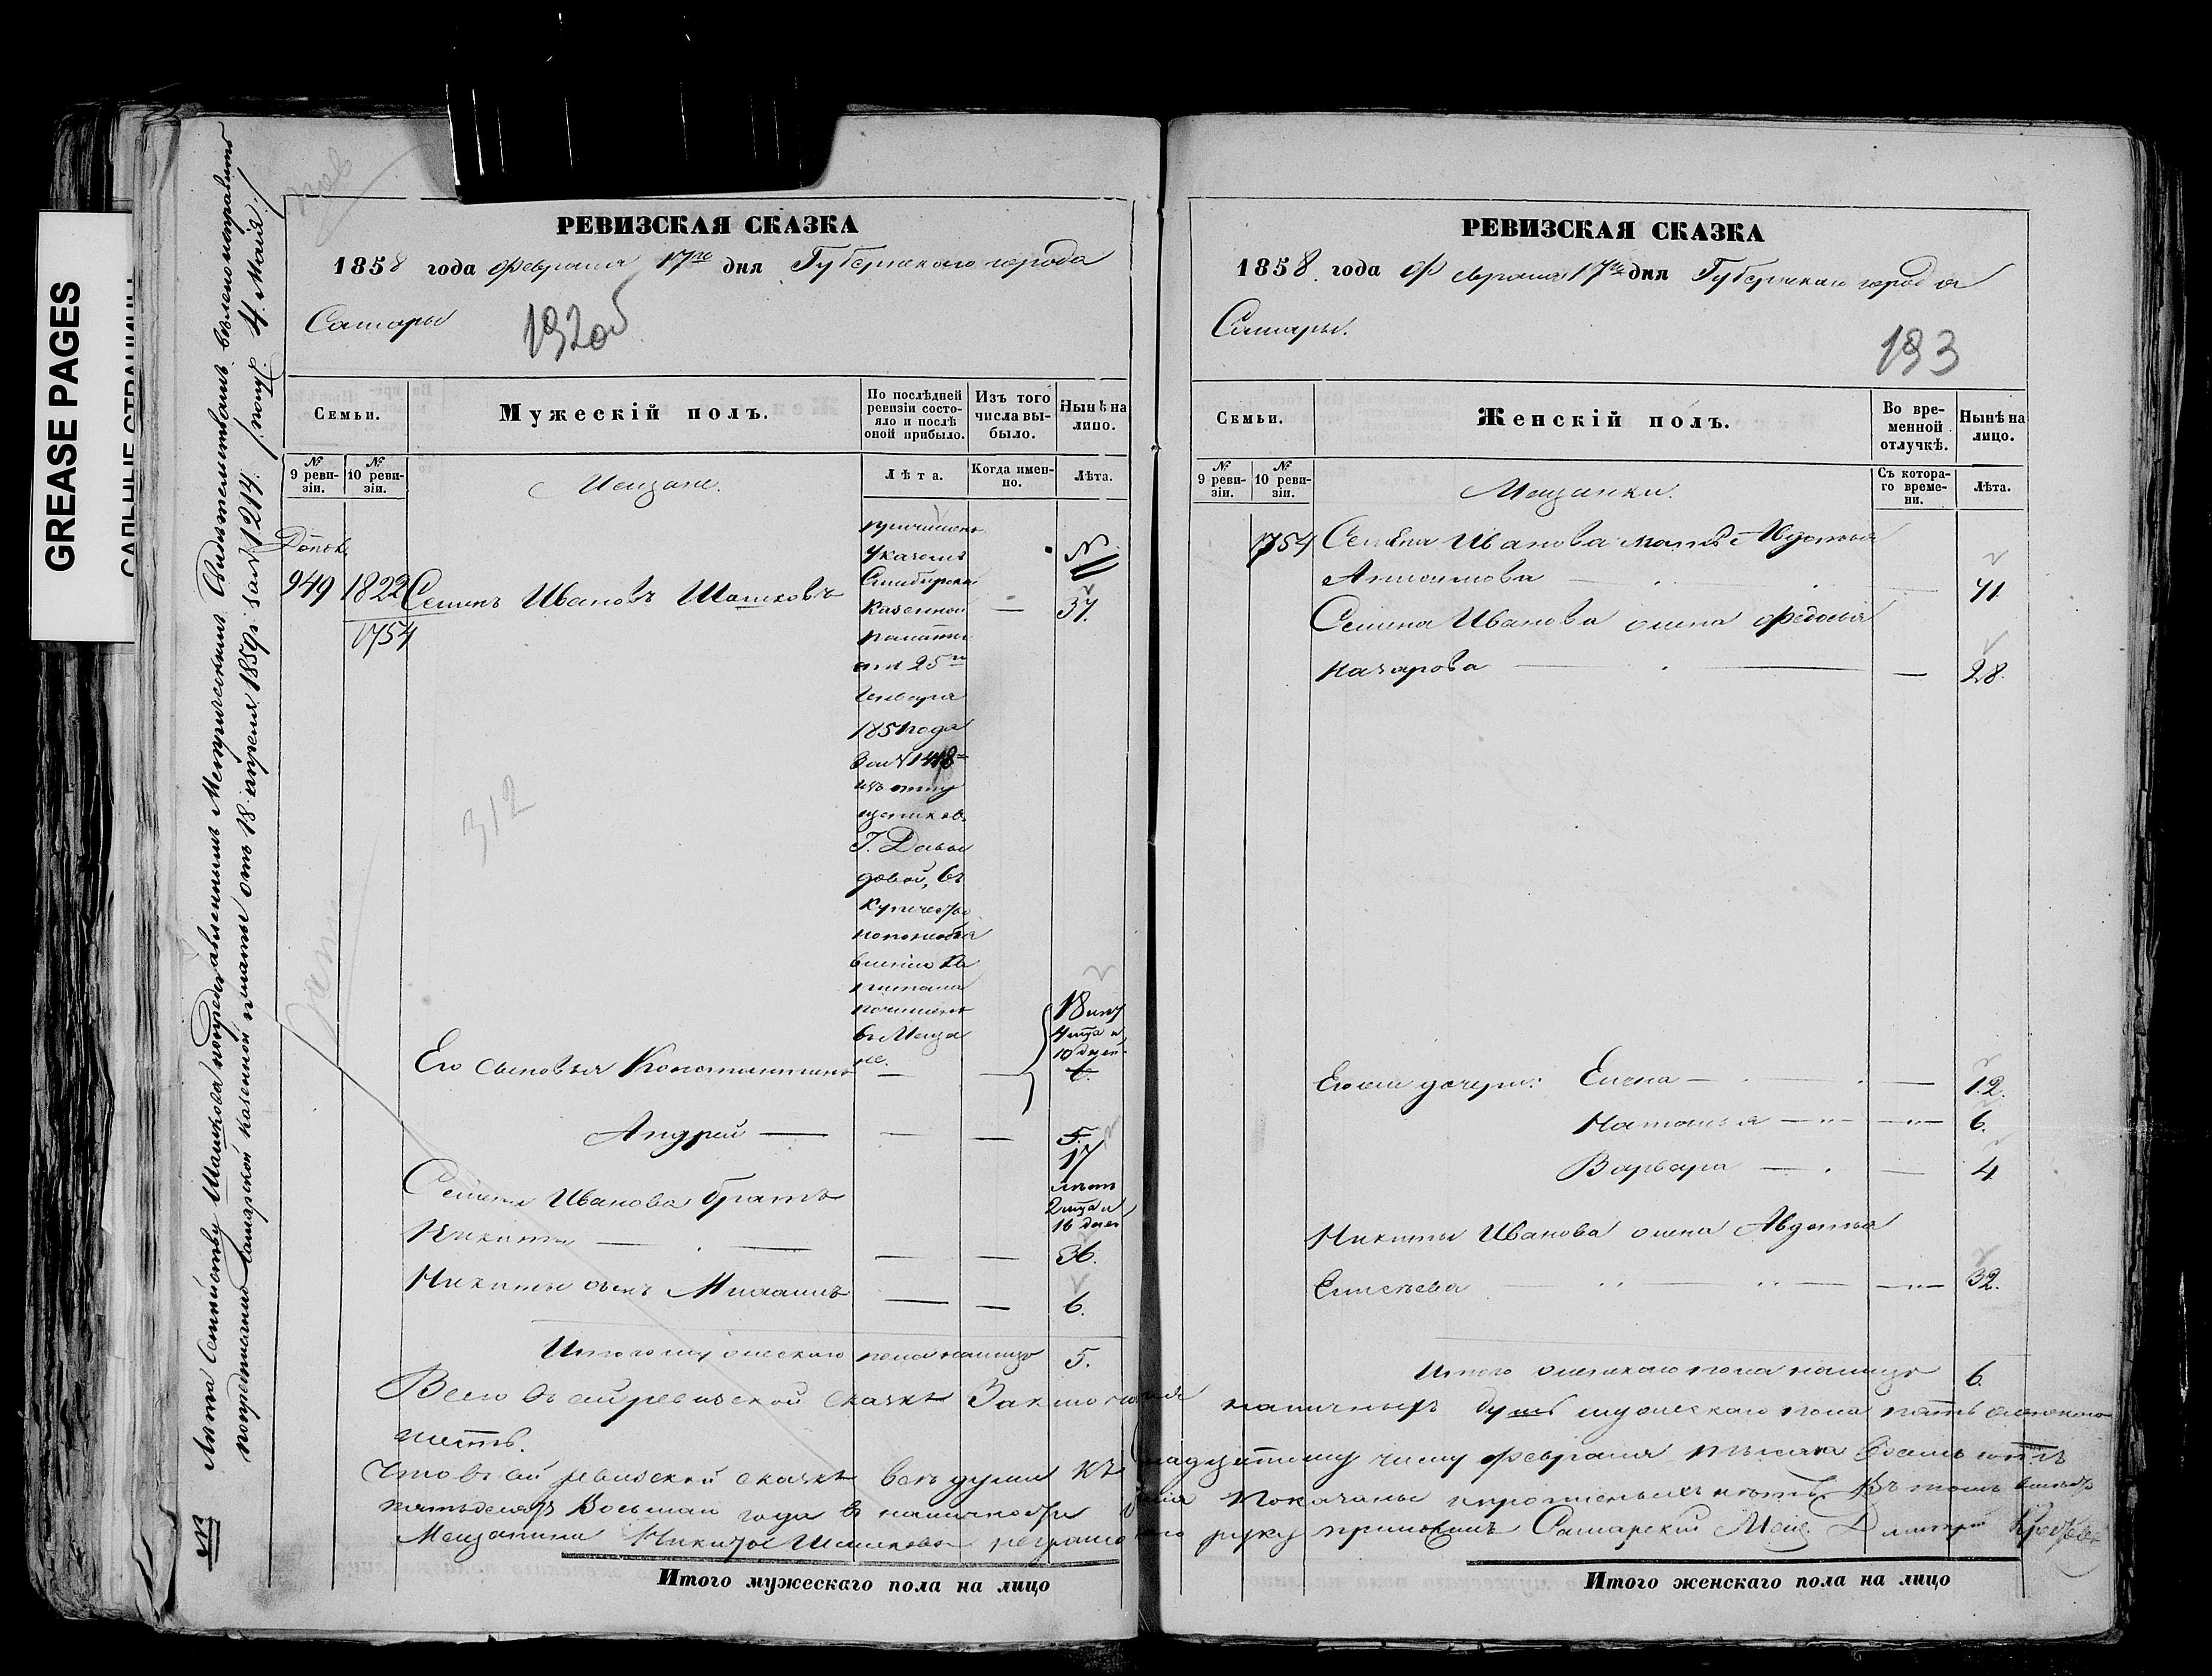 GREASE PAGES
Лѣта Семейству Шашкова по представленнымъ Метрическимъ Свидетельствамъ велено исправить
по предписанію Самарской Казенной палаты отъ 18 апреля 1859 г. за № 1214.
РЕВИЗСКАЯ СКАЗКА
1858 года Февраля 17го дня Губернскаго города
Самары
192об
Семьи.
Мужескій полъ.
По послѣдней ревизіи состояло и послѣ оной прибыло.
Изъ того числа выбыло.
Нынѣ на лицо.
№ 9 ревизіи.
№ 10 ревизіи.
Мещане.
Лѣта.
Когда именно.
Лѣта.
949
1822
1754
Семенъ Ивановъ Шашковъ
37.
причислен
Указомъ
Симбирской
Казенной
палаты
отъ 25го
Генваря
1851 года
за №
изъ отпу
щенниковъ
Г. Давы
довой, въ
Купечество
въ Меща
не.
312
Его сыновья Константинъ
18
4 мца и
10 дней
6.
Андрей
5.
17
летъ
2 мца и
16 дней
Семена Иванова братъ
Никита
36.
Никиты сынъ Михаилъ
6.
Итого мужескаго пола налицо
5.
Итого мужескаго пола на лицо
РЕВИЗСКАЯ СКАЗКА
1858 года Февраля 17го дня Губернскаго города
Самары.
193
Семьи.
Женскій полъ.
Во временной отлучкѣ.
Нынѣ на лицо.
№ 9 ревизіи.
№ 10 ревизіи.
Мещанки.
Съ котораго времени.
Лѣта.
1754
Семена Иванова мать Авдотья
71
Семена Иванова жена Федосья
Назарова
28.
Его же дочери: Елена
12.
Наталья
6.
Варвара
4
Никиты Иванова жена Авдотья
Елисеева
32.
Итого женскаго пола налицо
6.
Всего въ сей ревизской сказкѣ наличныхъ душъ мужескаго пола пять женскаго
шесть.
Что въ сей ревизской сказкѣ всѣ души къ числу февраля тысяча восемь сотъ
пятьдесятъ Восьмаго года въ наличности показаны и прописныхъ нѣтъ. Въ томъ вместо
Мещанина Никиты Шашкова руку приложилъ Самарскій Мещ. Дмитрій
Итого женскаго пола на лицо